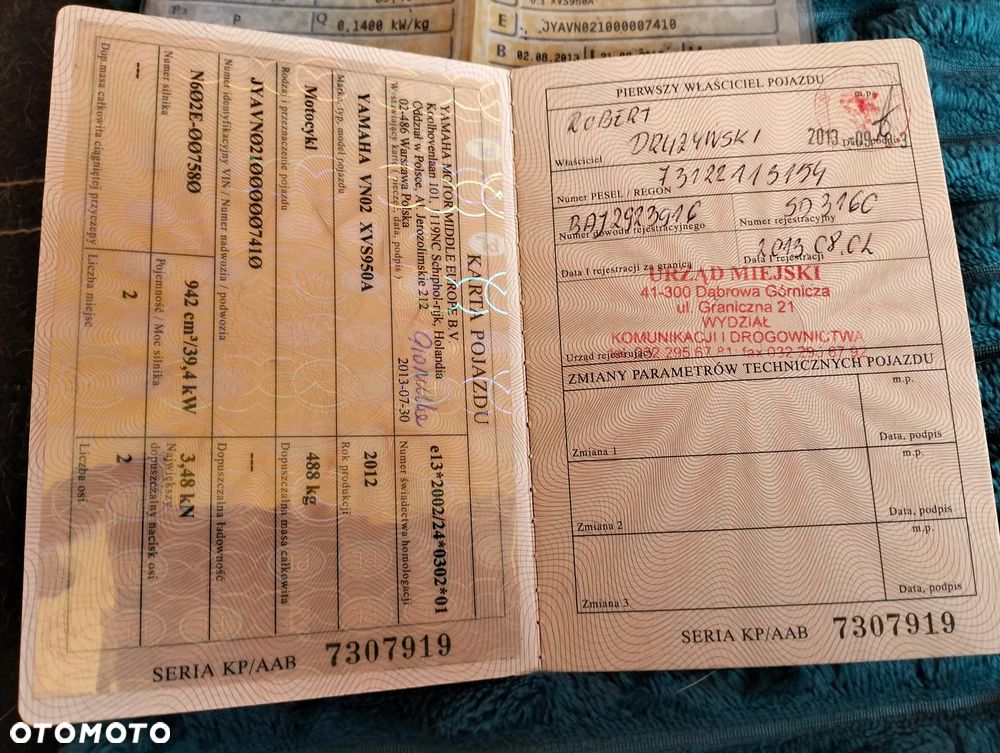 P
Q 0,1400 kW/kg
XVS950A
E JYAVN021000007410
B 02.08.2013
KARTA POJAZDU
YAMAHA MOTOR MIDDLE EUROPE B.V.
Koolhovenlaan 101, 1119NC Schiphol-rijk, Holandia
Oddział w Polsce, Al. Jerozolimskie 212
02-486 Warszawa Polska 2013-07-30
Wystawiający kartę (pieczęć, data, podpis)
e13*2002/24*0302*01
Numer świadectwa homologacji
YAMAHA VN02 XVS950A
Marka, typ, model pojazdu
2012
Rok produkcji
Motocykl
Rodzaj i przeznaczenie pojazdu
488 kg
Dopuszczalna masa całkowita
JYAVN021000007410
Numer identyfikacyjny VIN / Numer nadwozia / podwozia
---
Dopuszczalna ładowność
N602E-007580
Numer silnika
942 cm³/39,4 kW
Pojemność / Moc silnika
3,48 kN
Największy
dopuszczalny nacisk osi
---
Dop.masa całkowita ciągniętej przyczepy
2
Liczba miejsc
2
Liczba osi
SERIA KP/AAB 7307919
PIERWSZY WŁAŚCICIEL POJAZDU
m.p.
ROBERT
2013 -09-
Właściciel
Data, podpis
73122113154
Numer PESEL / REGON
SD316C
Numer dowodu rejestracyjnego
Numer rejestracyjny
2013.08.02
Data I rejestracji za granicą
Data I rejestracji
URZĄD MIEJSKI
41-300 Dąbrowa Górnicza
ul. Graniczna 21
WYDZIAŁ
KOMUNIKACJI I DROGOWNICTWA
Urząd rejestrujący
ZMIANY PARAMETRÓW TECHNICZNYCH POJAZDU
m.p.
Zmiana 1
Data, podpis
m.p.
Zmiana 2
Data, podpis
m.p.
Zmiana 3
Data, podpis
SERIA KP/AAB 7307919
OTOMOTO